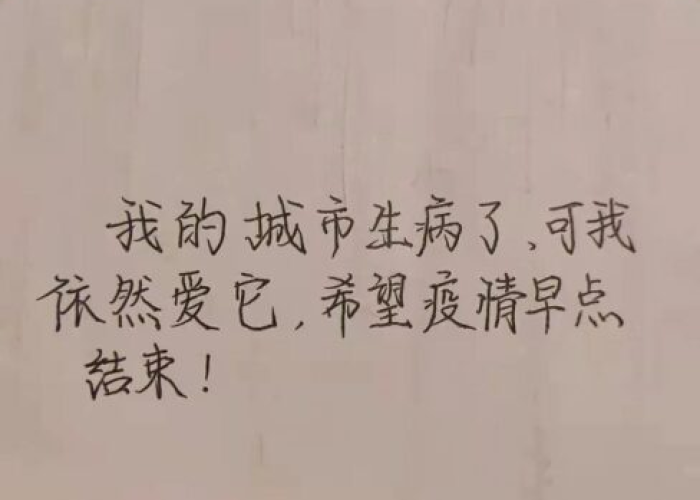 我的城市生病了、可我
依然爱它,希望疫情早点
结束!